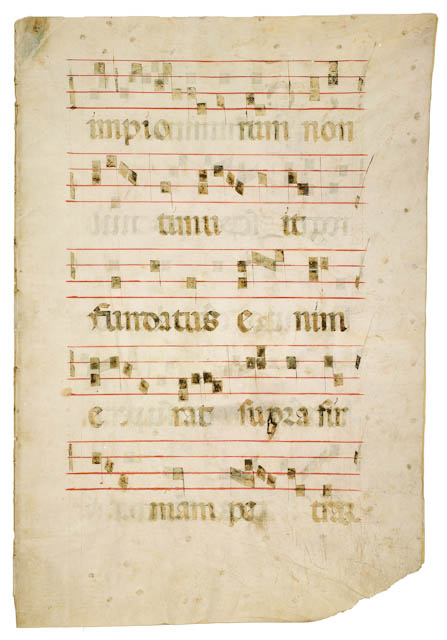 impiorum non
timu it
fundatus e nim
e rat supra fir
mam pe tram